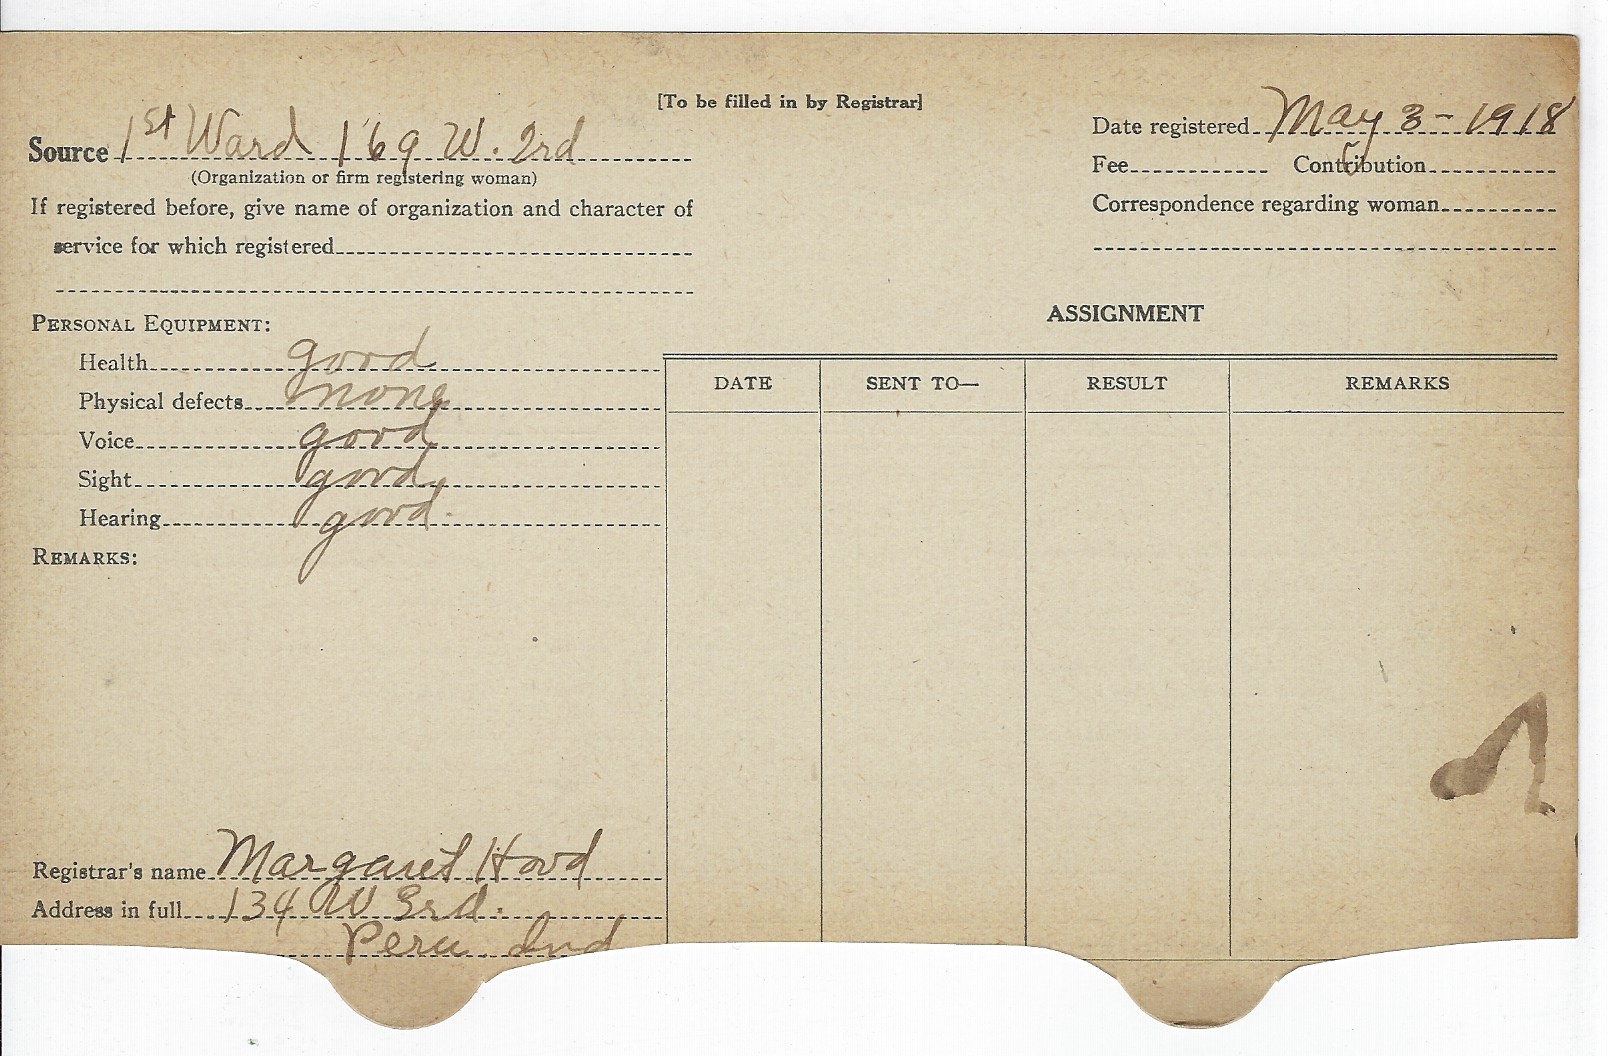 [To be filled in by Registrar]
Source 1st Ward 169 W. 2rd
(Organization or firm registering woman)
If registered before, give name of organization and character of
service for which registered
Date registered May 3 - 1918
Fee Contribution
Correspondence regarding woman
PERSONAL EQUIPMENT:
Health good
Physical defects none
Voice good
Sight good
Hearing good
REMARKS:
ASSIGNMENT
DATE SENT TO— RESULT REMARKS
Registrar's name Margaret Hood
Address in full 134 W 3rd.
Peru. Ind